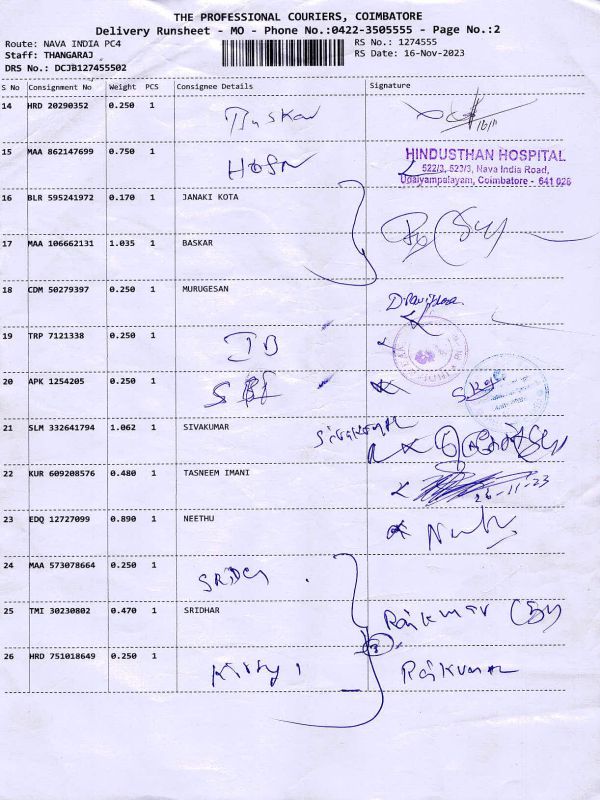 THE PROFESSIONAL COURIERS, COIMBATORE
Delivery Runsheet - MO - Phone No.:0422-3505555 - Page No.:2
Route: NAVA INDIA PC4 RS No.: 1274555
Staff: THANGARAJ RS Date: 16-Nov-2023
DRS No.: DCJB127455502
S No Consignment No Weight PCS Consignee Details Signature
14 HRD 20290352 0.250 1 16/11
15 MAA 862147699 0.750 1 HINDUSTHAN HOSPITAL
522/3, 523/3, Nava India Road,
Udaiyampalayam, Coimbatore - 641 028
16 BLR 595241972 0.170 1 JANAKI KOTA
17 MAA 106662131 1.035 1 BASKAR
18 CDM 50279397 0.250 1 MURUGESAN
19 TRP 7121338 0.250 1
20 APK 1254205 0.250 1
21 SLM 332641794 1.062 1 SIVAKUMAR Sivakumar
22 KUR 609208576 0.480 1 TASNEEM IMANI 26-11-23
23 EDQ 12727099 0.890 1 NEETHU
24 MAA 573078664 0.250 1
25 TMI 30230802 0.470 1 SRIDHAR Rajkumar
26 HRD 751018649 0.250 1 Rajkumar